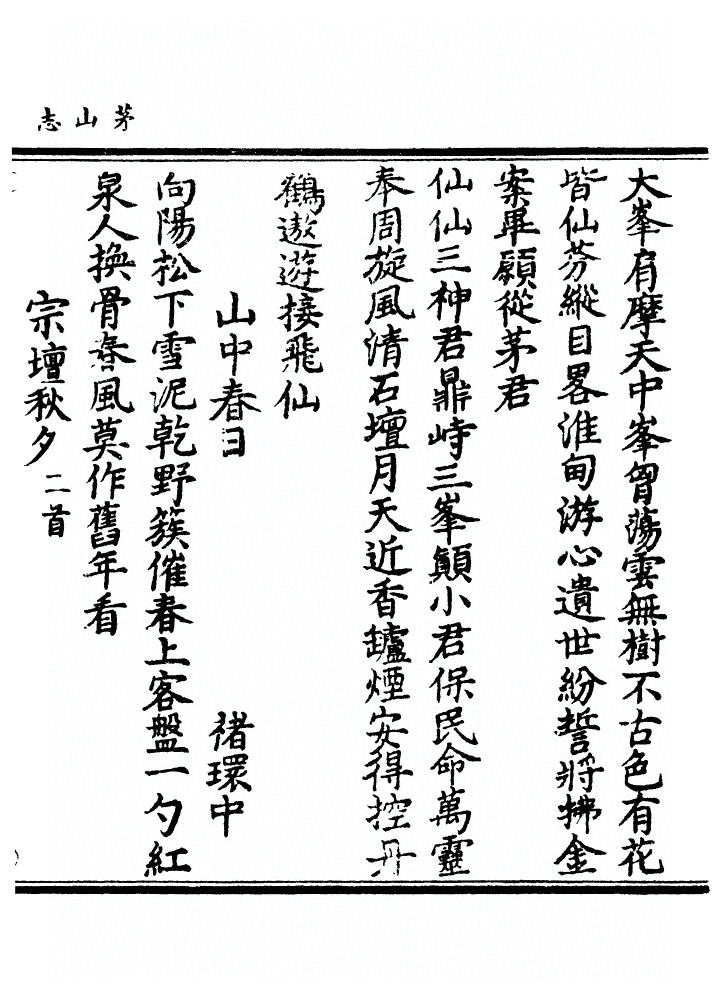 茅山志
大峯有摩天中峯曾蕩雲無樹不古色有花
皆仙芬縱目畧淮甸游心遺世紛誓將拂金
案畢願從茅君
仙仙三神君鼎峙三峯顛小君保民命萬靈
奉周旋風清石壇月天近香鑪煙安得控丹
鶴遨遊接飛仙
山中春日 禇環中
向陽松下雪泥乾野簇催春上客盤一勺紅
泉人換骨春風莫作舊年看
宗壇秋夕 二首